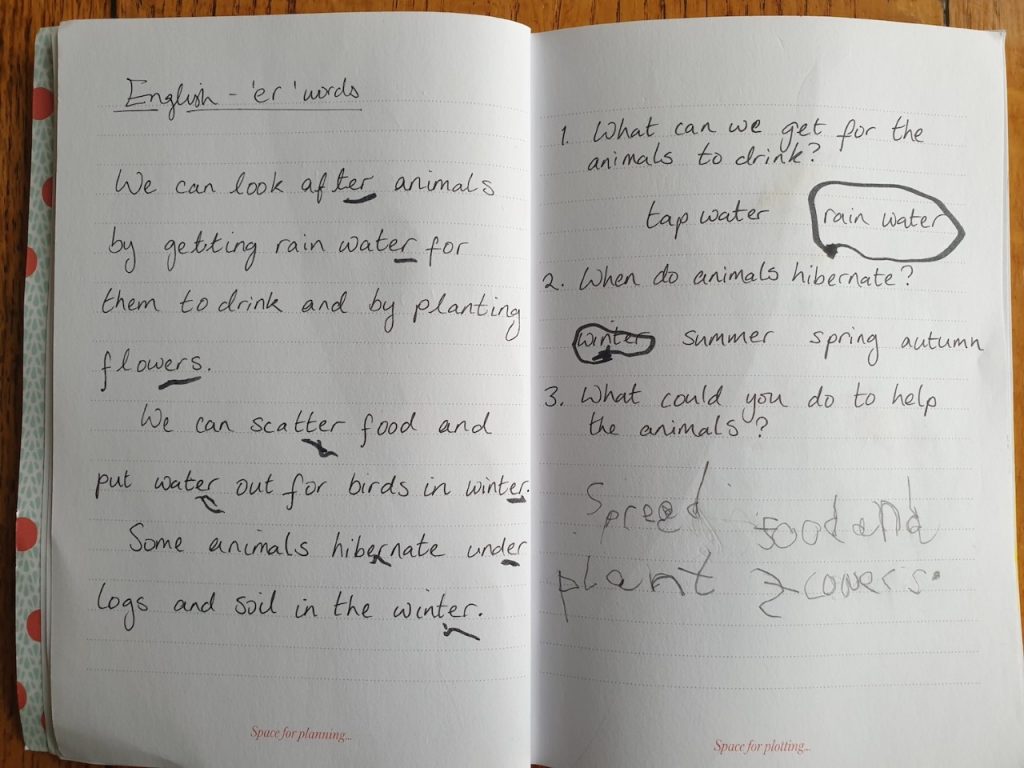 English - 'er' words
We can look after animals
by getting rain water for
them to drink and by planting
flowers.
We can scatter food and
put water out for birds in winter.
Some animals hibernate under
logs and soil in the winter.
Space for planning...
1. What can we get for the
animals to drink?
tap water rain water
2. When do animals hibernate?
winter summer spring autumn
3. What could you do to help
the animals?
Spreed food and
plant
Space for plotting...